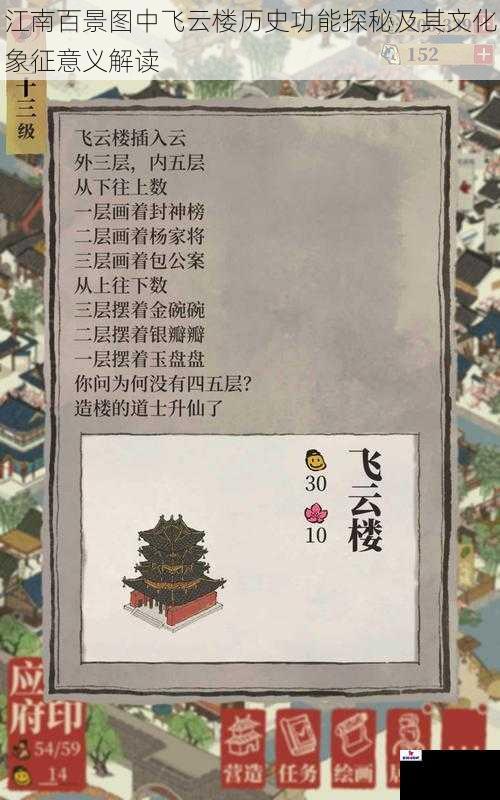 江南百景图中飞云楼历史功能探秘及其文化
象征意义解读
152
十三级
飞云楼插入云
外三层，内五层
从下往上数
一层画着封神榜
二层画着杨家将
三层画着包公案
从上往下数
三层摆着金碗碗
二层摆着银瓣瓣
一层摆着玉盘盘
你问为何没有四五层？
造楼的道士升仙了
飞云楼
30
10
应
府印
54/59
14
营造
任务
绘画